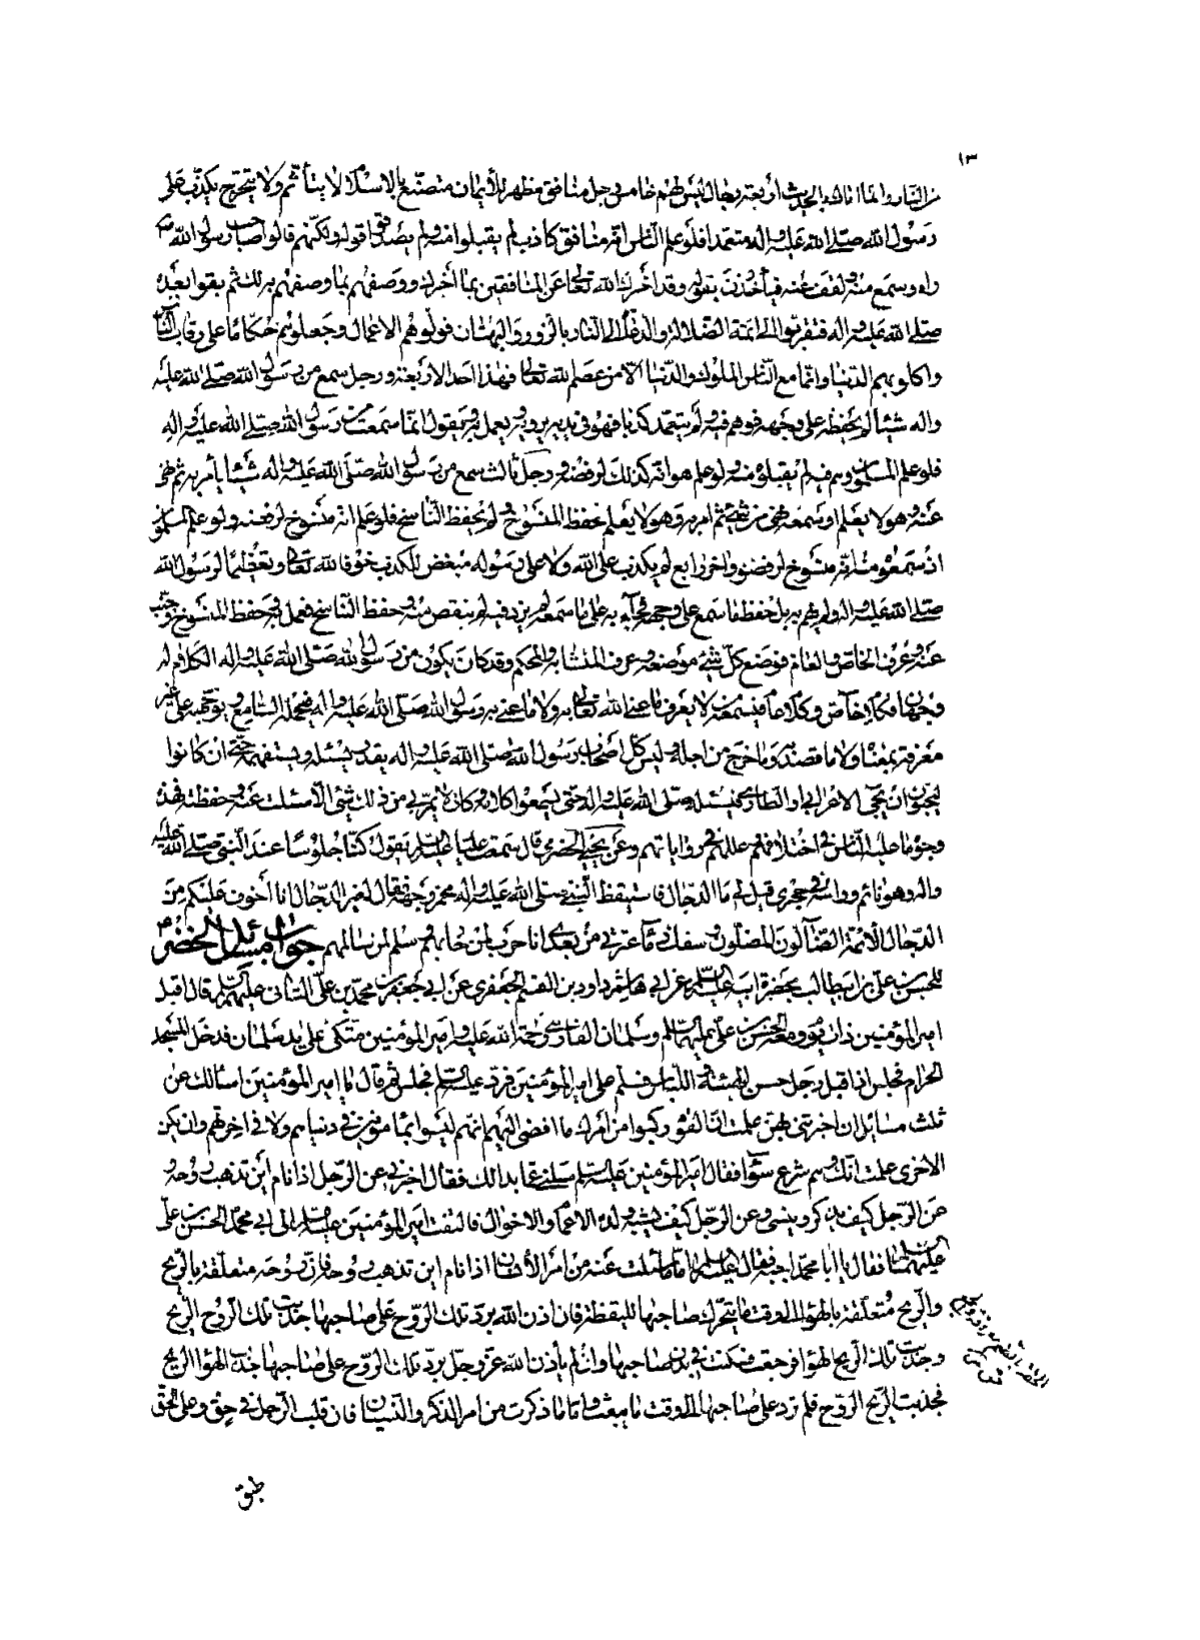 ١٣
من النار وانما اتاك بالحديث أربعة رجال ليس لهم خامس رجل منافق مظهر للأيمان متصنع بالاسلام لا يتأثم ولا يتحرج يكذب على
رسول الله صلى الله عليه واله متعمدا فلو علم الناس انه منافق كاذب لم يقبلوا منه ولم يصدقوا قوله ولكنهم قالوا صاحب رسول الله ص
راه وسمع منه ولقف عنه فيأخذون بقوله وقد أخبرك الله تعالى عن المنافقين بما أخبرك ووصفهم بما وصفهم به لك ثم بقوا بعده
صلى الله عليه واله فتقربوا الى ائمة الضلالة والدعاة الى النار بالزور والبهتان فولوهم الاعمال وجعلوهم حكاما على رقاب الناس
واكلوا بهم الدنيا وانما مع الناس الملوك والدنيا الا من عصم الله تعالى فهذا احد الاربعة ورجل سمع من رسول الله صلى الله عليه
واله شيئا لم يحفظه على وجهه فوهم فيه ولم يتعمد كذبا فهو في يديه يرويه ويعمل به ويقول انا سمعت من رسول الله صلى الله عليه واله
فلو علم المسلمون انه وهم فيه لم يقبلوه منه ولو علم هو انه كذلك لرفضه ورجل ثالث سمع من رسول الله صلى الله عليه واله شيئا يأمر به ثم نهى
عنه وهو لا يعلم او سمعه نهى عن شيء ثم امر به وهو لا يعلم حفظ المنسوخ ولم يحفظ الناسخ فلو علم انه منسوخ لرفضه ولو علم المسلمون
اذ سمعوه منه انه منسوخ لرفضوه واخر رابع لم يكذب على الله ولا على رسوله مبغض للكذب خوفا لله تعالى وتعظيما لرسول الله
صلى الله عليه واله ولم يهم به بل حفظ ما سمع على وجهه فجاء به على ما سمعه لم يزد فيه ولم ينقص منه وحفظ الناسخ فعمل به وحفظ المنسوخ وجنب
عنه وعرف الخاص والعام فوضع كل شيء موضعه وعرف المتشابه والمحكم وقد كان يكون من رسول الله صلى الله عليه واله الكلام له
وجهان فكلام خاص وكلام عام فيسمعه من لا يعرف ما عنى الله تعالى به ولا ما عنى به رسول الله صلى الله عليه واله فيحمله السامع ويوجهه على غير
معرفة بمعناه ولا ما قصد به وما خرج من اجله وليس كل اصحاب رسول الله صلى الله عليه واله يقدر يسئله ويستفهمه حتى ان كانوا
ليحبون ان يجيء الاعرابي او الطاري فيسئله صلى الله عليه واله حتى يسمعوا كلامه وكان لا يمر بي من ذلك شيء الا سئلت عنه وحفظته فهذه
وجوه ما عليه الناس في اختلافهم وعللهم في رواياتهم وعن يحيى الحضرمي قال سمعت عليا عليه السلام يقول كنا جلوسا عند النبي صلى الله عليه
واله وهو نائم ورأسه في حجري قيل لي ما الدجال فاستيقظ النبي صلى الله عليه واله محمر وجهه فقال لغير الدجال انا أخوف عليكم من
الدجال الأئمة الضالون المضلون وسفك دماء عترتي من بعدي انا حرب لمن حاربهم وسلم لمن سالمهم جواب مسائل الخضر ع
للحسن بن علي بن ابي طالب بحضرة ابيه عليه السلام عن ابي هاشم داود بن القسم الجعفري عن ابي جعفر محمد بن علي الثاني عليهم السلام قال اقبل
امير المؤمنين ذات يوم ومعه الحسن بن علي عليهما السلام وسلمان الفارسي رحمة الله عليه وامير المؤمنين متكئ على يد سلمان فدخل المسجد
الحرام فجلس اذا قبل رجل حسن الهيئة واللباس فسلم على امير المؤمنين فرد عليه السلم فجلس ثم قال يا امير المؤمنين اسالك عن
ثلث مسائل ان اخبرتني بهن علمت ان القوم ركبوا من أمرك ما افضى اليهم انهم ليسوا بمأمونين في دنياهم ولا في اخرتهم وان يكن
الاخرى علمت انك وهم شرع سواء فقال امير المؤمنين عليه السلم سلني عما بدا لك فقال اخبرني عن الرجل اذا نام أين تذهب روحه
عن الرجل كيف يذكر وينسى وعن الرجل كيف يشبه ولده الاعمام والاخوال فالتفت امير المؤمنين عليه السلم الى ابي محمد الحسن بن علي
عليهما السلم فقال يا أبا محمد اجبه فقال عليه السلم اما ما سئلت عنه من امر الأنسان اذا نام اين تذهب روحه فان روحه متعلقة بالريح
والريح متعلقة بالهواء الى وقت ما يتحرك صاحبها لليقظة فان اذن الله برد تلك الروح على صاحبها جذبت تلك الروح الريح
وجذبت تلك الريح الهواء فرجعت فسكنت في بدن صاحبها وان لم يأذن الله عز وجل برد تلك الروح على صاحبها جذب الهواء الريح
فجذبت الريح الروح فلم ترد على صاحبها الى وقت ما يبعث واما ما ذكرت من امر الذكر والنسيان فان قلب الرجل في حق وعلى الحق
طبق